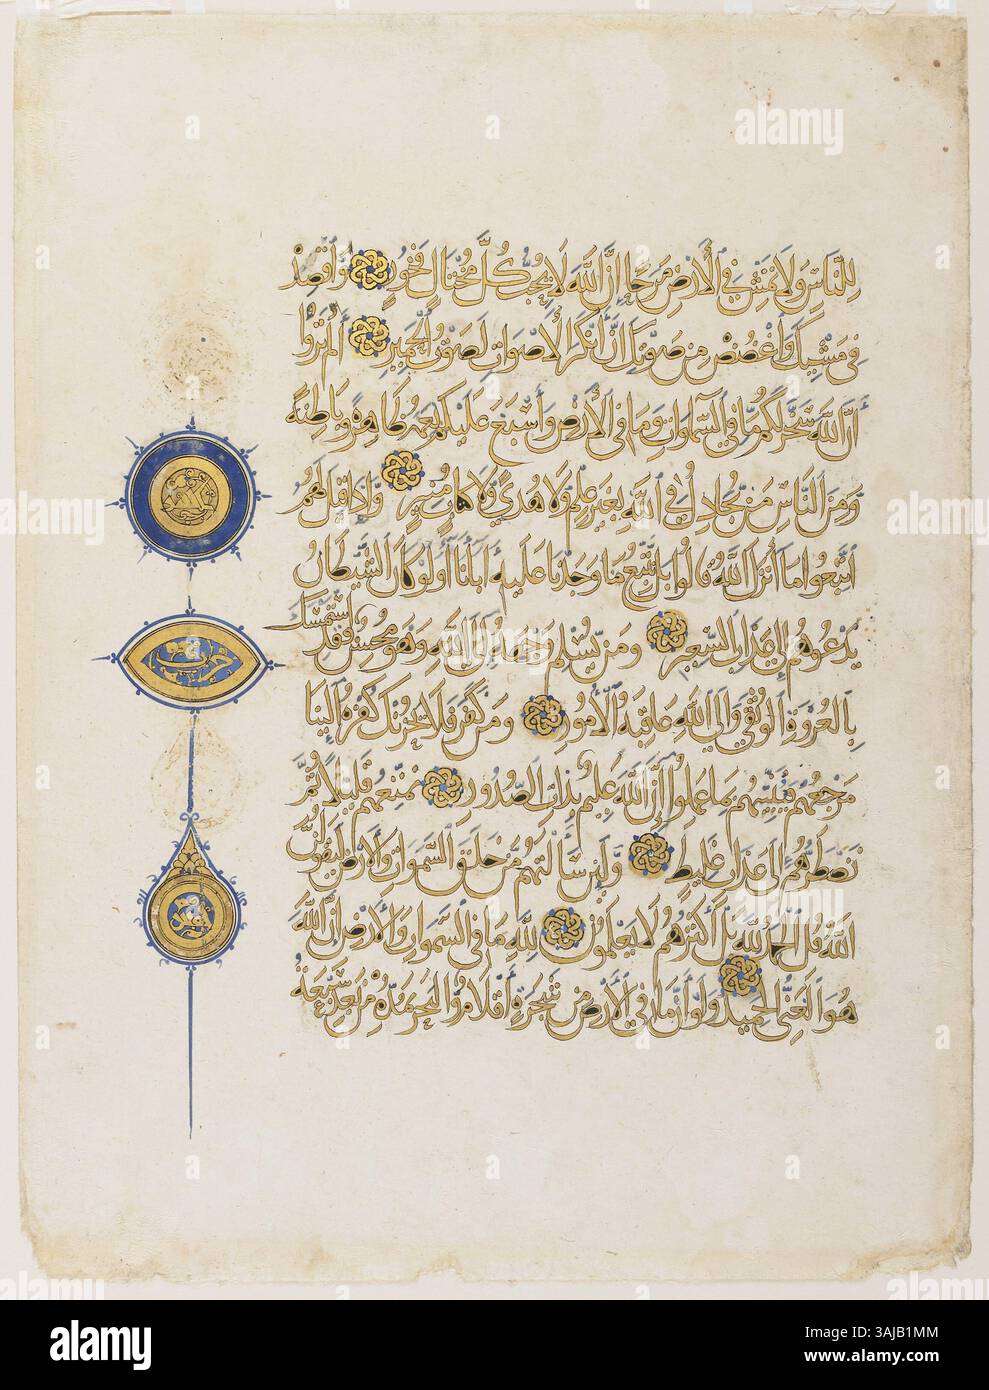 لِلنَّاسِ وَلَا تَمْشِ فِي الْأَرْضِ مَرَحًا إِنَّ اللَّهَ لَا يُحِبُّ كُلَّ مُخْتَالٍ فَخُورٍ وَاقْصِدْ
فِي مَشْيِكَ وَاغْضُضْ مِنْ صَوْتِكَ إِنَّ أَنْكَرَ الْأَصْوَاتِ لَصَوْتُ الْحَمِيرِ أَلَمْ تَرَوْا
أَنَّ اللَّهَ سَخَّرَ لَكُمْ مَا فِي السَّمَاوَاتِ وَمَا فِي الْأَرْضِ وَأَسْبَغَ عَلَيْكُمْ نِعَمَهُ ظَاهِرَةً وَبَاطِنَةً
وَمِنَ النَّاسِ مَنْ يُجَادِلُ فِي اللَّهِ بِغَيْرِ عِلْمٍ وَلَا هُدًى وَلَا كِتَابٍ مُنِيرٍ وَإِذَا قِيلَ لَهُمُ
اتَّبِعُوا مَا أَنْزَلَ اللَّهُ قَالُوا بَلْ نَتَّبِعُ مَا وَجَدْنَا عَلَيْهِ آبَاءَنَا أَوَلَوْ كَانَ الشَّيْطَانُ
يَدْعُوهُمْ إِلَى عَذَابِ السَّعِيرِ وَمَنْ يُسْلِمْ وَجْهَهُ إِلَى اللَّهِ وَهُوَ مُحْسِنٌ فَقَدِ اسْتَمْسَكَ
بِالْعُرْوَةِ الْوُثْقَى وَإِلَى اللَّهِ عَاقِبَةُ الْأُمُورِ وَمَنْ كَفَرَ فَلَا يَحْزُنْكَ كُفْرُهُ إِلَيْنَا
مَرْجِعُهُمْ فَنُنَبِّئُهُمْ بِمَا عَمِلُوا إِنَّ اللَّهَ عَلِيمٌ بِذَاتِ الصُّدُورِ نُمَتِّعُهُمْ قَلِيلًا ثُمَّ
نَضْطَرُّهُمْ إِلَى عَذَابٍ غَلِيظٍ وَلَئِنْ سَأَلْتَهُمْ مَنْ خَلَقَ السَّمَاوَاتِ وَالْأَرْضَ لَيَقُولُنَّ
اللَّهُ قُلِ الْحَمْدُ لِلَّهِ بَلْ أَكْثَرُهُمْ لَا يَعْلَمُونَ لِلَّهِ مَا فِي السَّمَاوَاتِ وَالْأَرْضِ إِنَّ اللَّهَ
هُوَ الْغَنِيُّ الْحَمِيدُ وَلَوْ أَنَّمَا فِي الْأَرْضِ مِنْ شَجَرَةٍ أَقْلَامٌ وَالْبَحْرُ يَمُدُّهُ مِنْ بَعْدِهِ سَبْعَةُ
alamy
Image ID: 3AJB1MM
www.alamy.com